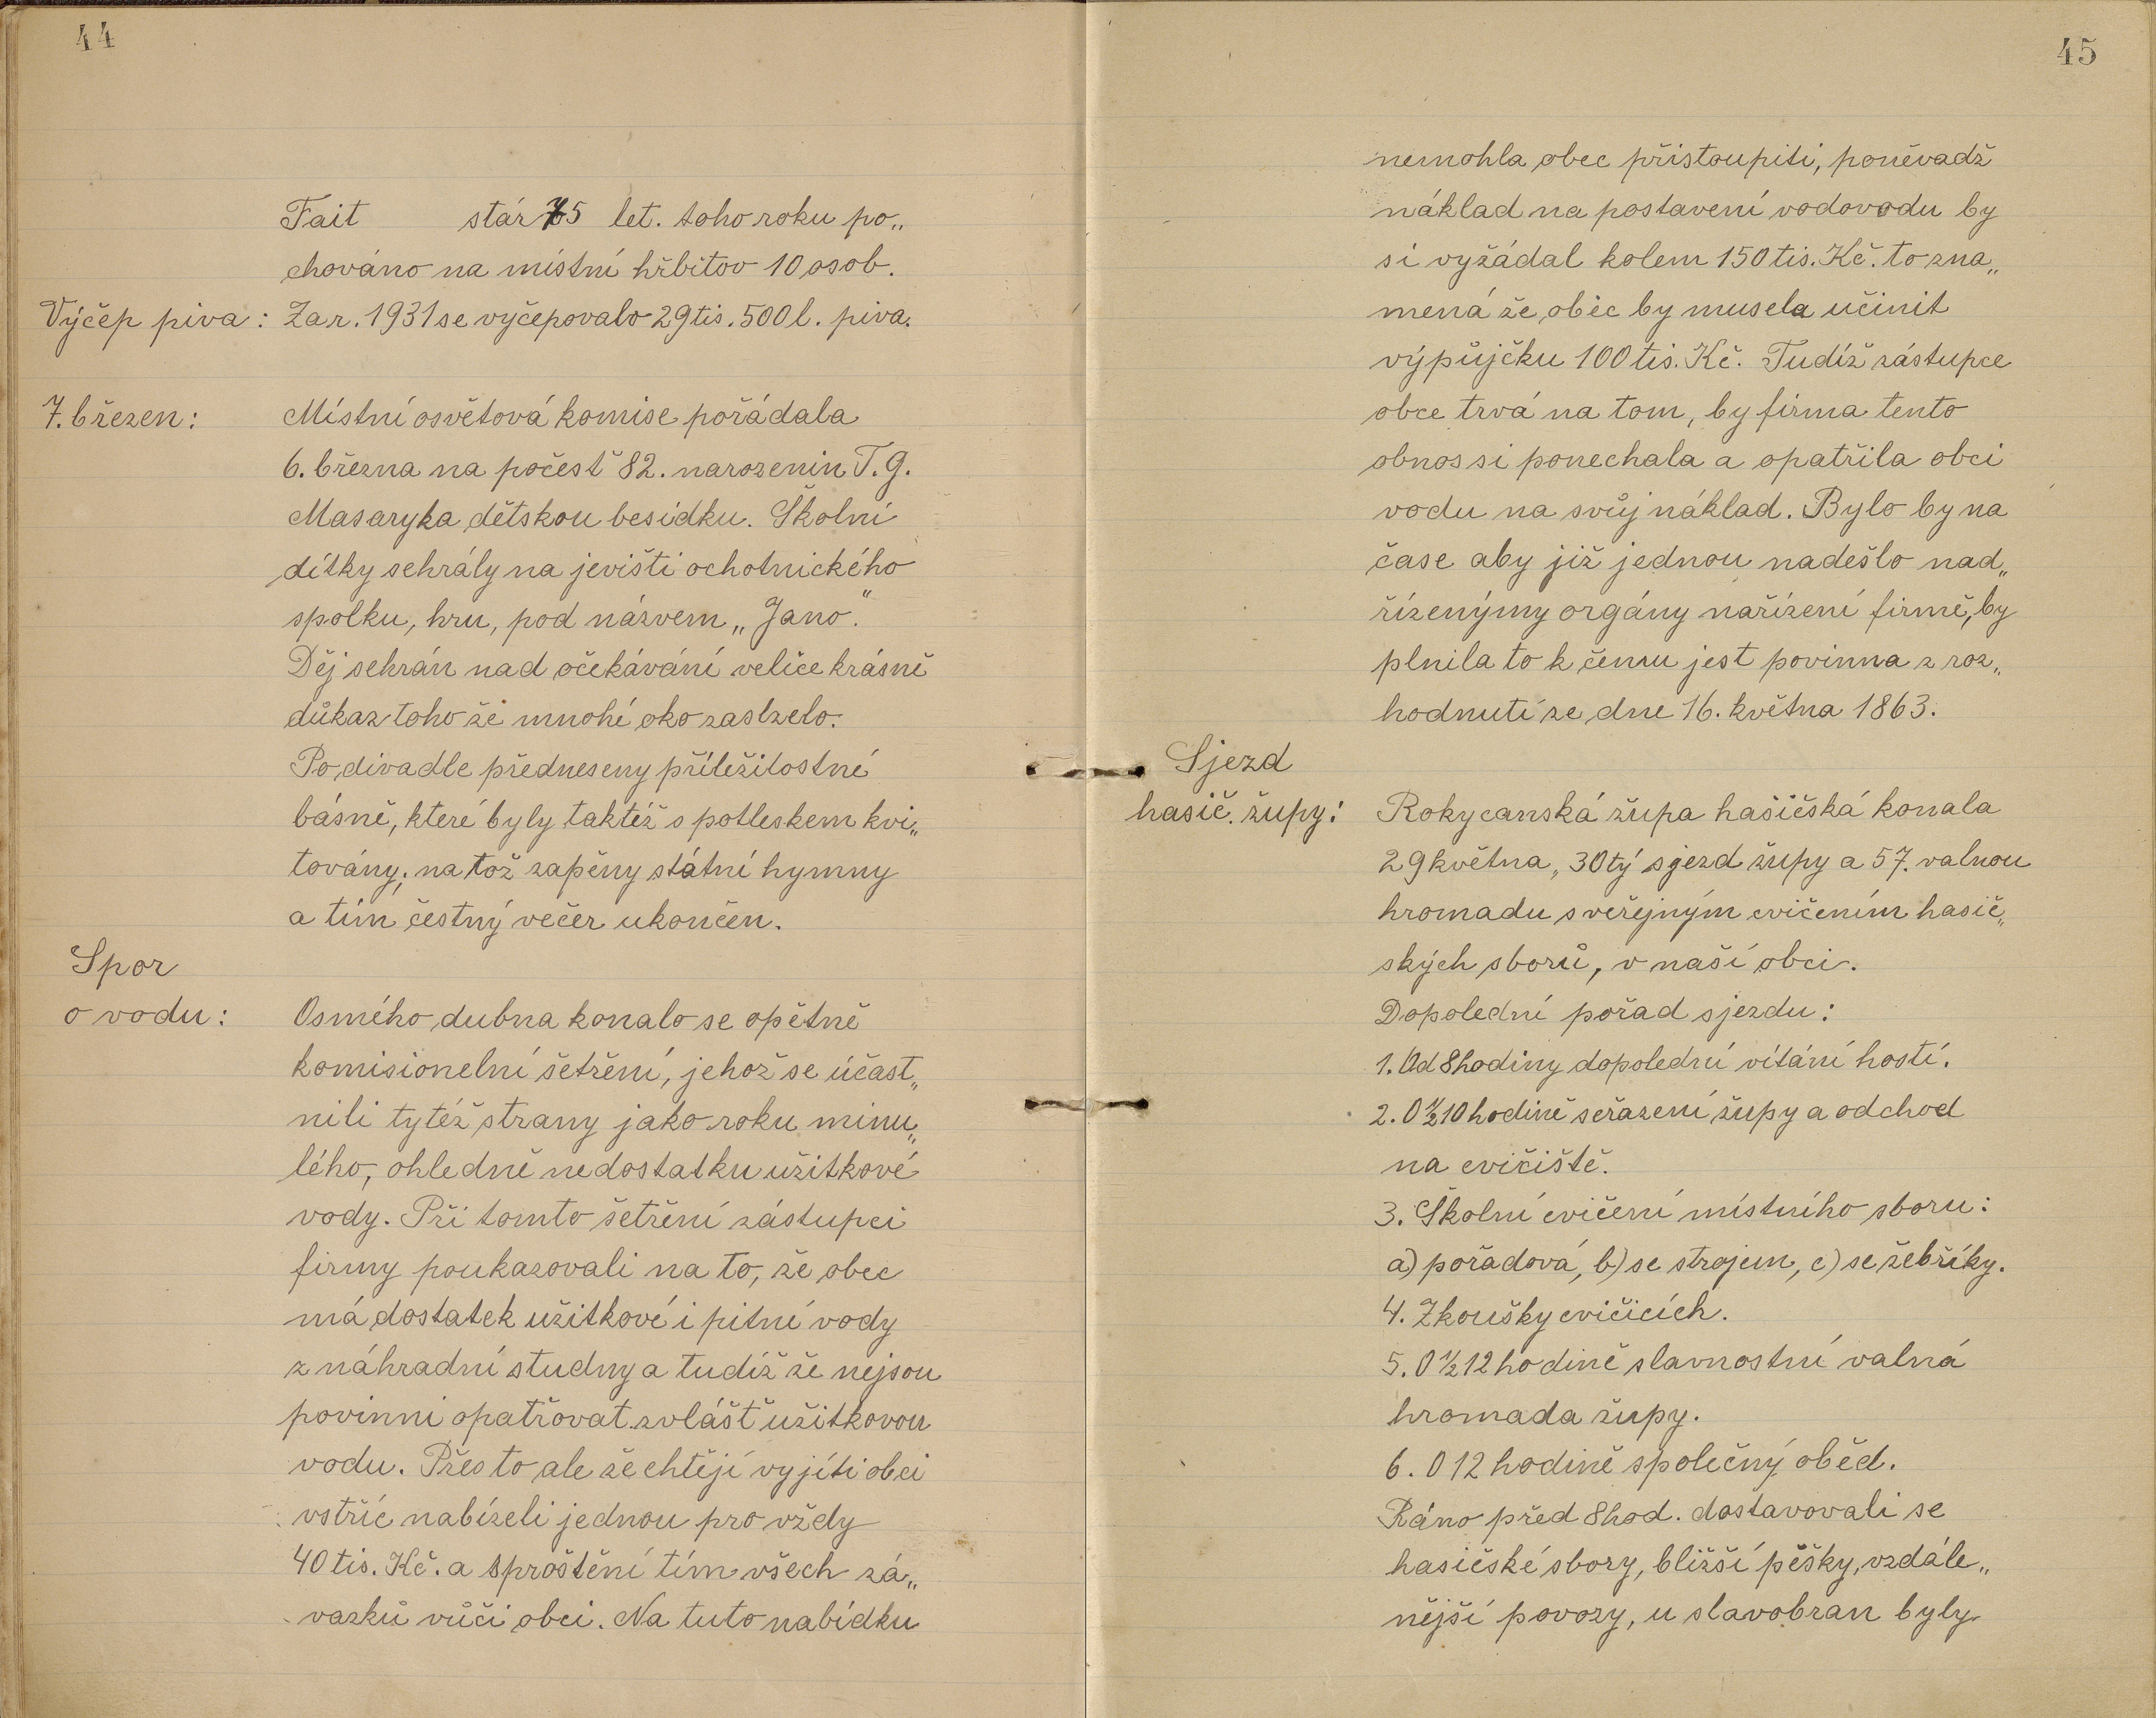 44
Fait stár 75 let. toho roku po„
chováno na místní hřbitov 10 osob.
Výčep piva: Za r. 1931 se vyčepovalo 29 tis. 500 l. piva.
7. březen: Místní osvětová komise pořádala
6. března na počesť 82. narozenin T. G.
Masaryka dětskou besídku. Školní
dítky sehrály na jevišti ochotnického
spolku, hru, pod názvem „Jano".
Děj sehrán nad očekávání velice krásně
důkaz toho že mnohé oko zaslzelo.
Po divadle předneseny příležitostné
básně, které byly taktéž s potleskem kvi„
továny; na tož zapěny státní hymny
a tím čestný večer ukončen.
Spor
o vodu: Osmého dubna konalo se opětně
komisionelní šetření, jehož se účast„
nili tytéž strany jako roku minu„
lého, ohledně nedostatku užitkové
vody. Při tomto šetření zástupci
firmy poukazovali na to, že obec
má dostatek užitkové i pitné vody
z náhradní studny a tudíž že nejsou
povinni opatřovat zvlášť užitkovou
vodu. Přes to ale že chtějí vyjíti obci
vstříc nabízeli jednou pro vždy
40 tis. Kč. a sproštění tím všech zá„
vazků vůči obci. Na tuto nabídku
45
nemohla obec přistoupiti, poněvadž
náklad na postavení vodovodu by
si vyžádal kolem 150 tis. Kč. to zna„
mená že obec by musela učinit
výpůjčku 100 tis. Kč. Tudíž zástupce
obce trvá na tom, by firma tento
obnos si ponechala a opatřila obci
vodu na svůj náklad. Bylo by na
čase aby již jednou nadešlo nad„
řízenýmy orgány nařízení firmě, by
plnila to k čemu jest povinna z roz„
hodnutí ze dne 16. května 1863.
Sjezd
hasič. župy: Rokycanská župa hasičská konala
29 května, 30tý sjezd župy a 57. valnou
hromadu s veřejným cvičením hasič„
ských sborů, v naší obci.
Dopolední pořad sjezdu:
1. Od 8 hodiny dopolední vítání hostí.
2. O ½ 10 hodině seřazení župy a odchod
na cvičiště.
3. Školní cvičení místního sboru:
a) pořadová, b) se strojem, c) se žebříky.
4. Zkoušky cvičících.
5. O ½ 12 hodině slavnostní valná
hromada župy.
6. O 12 hodině společný oběd.
Ráno před 8 hod. dostavovali se
hasičské sbory, bližší pěšky, vzdále„
nější povozy, u slavobran byly